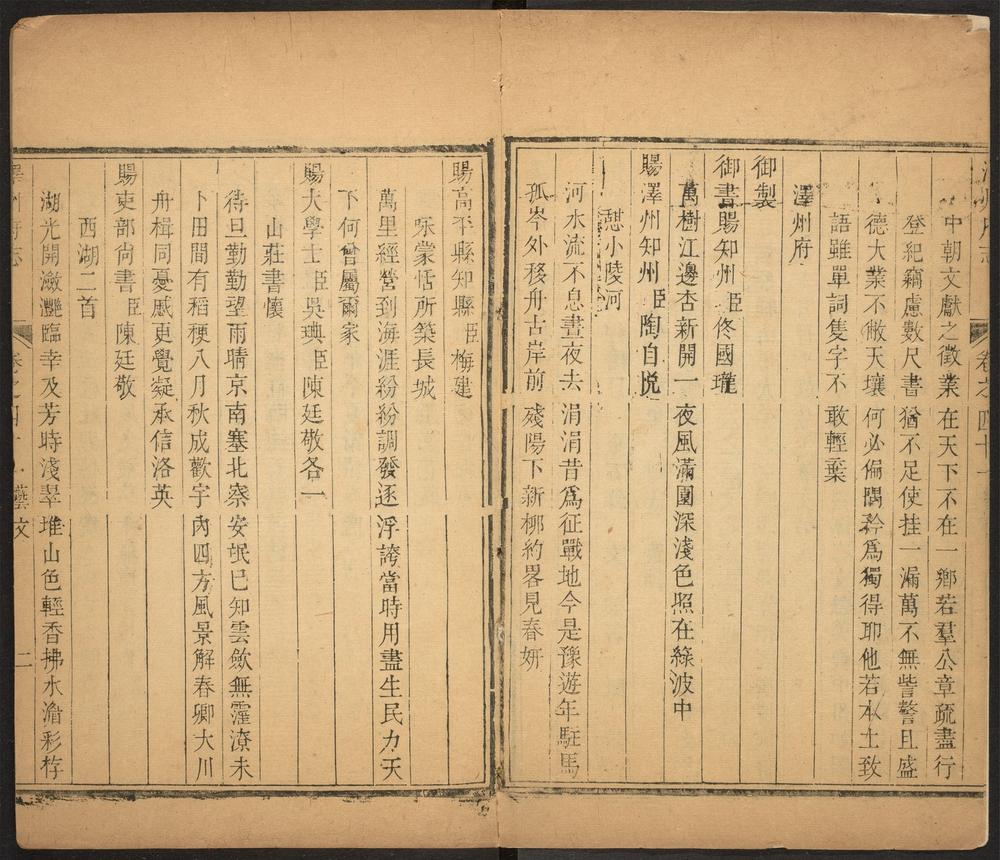 卷之四十
中朝文獻之徵業在天下不在一鄉若羣公章疏盡行
登紀竊慮數尺書猶不足使挂一漏萬不無訾謷且盛
德大業不敝天壤何必偏隅矜爲獨得耶他若本土致
語雖單詞隻字不敢輕棄
澤州府
御製
御書賜知州臣佟國瓏
萬樹江邊杏新開一夜風滿園深淺色照在綠波中
賜澤州知州臣陶自悅
憇小陵河
河水流不息晝夜去涓涓昔爲征戰地今是豫遊年駐馬
孤岑外移舟古岸前殘陽下新柳約畧見春妍
賜高平縣知縣臣梅建
咏蒙恬所築長城
萬里經營到海涯紛紛調發逐浮誇當時用盡生民力天
下何曾屬爾家
賜大學士臣吳琠臣陳廷敬各一
山莊書懷
待旦勤勤望雨晴京南塞北察安氓已知雲歛無霪潦未
卜田間有稻稉八月秋成歡宇內四方風景解春卿大川
舟楫同憂戚更覺凝承信洛英
賜吏部尚書臣陳廷敬
西湖二首
湖光開瀲灧臨幸及芳時淺翠堆山色輕香拂水湄彩
府志
卷之四十
藝文
二